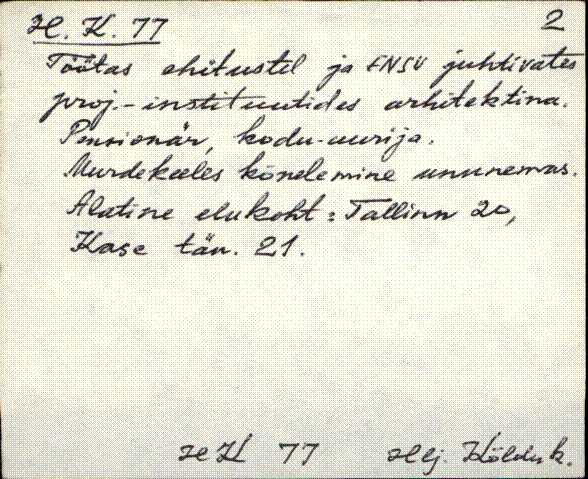 H. K. 77 2
Töötas ehitustel ja ENSV juhtivates
proj.-instituutides arhitektina.
Pensionär, kodu-uurija.
Murdekeeles kõnelemine ununemas.
Alatine elukoht: Tallinn 20,
Kase tän. 21.
HK 77 Hlj. Kõlduk.